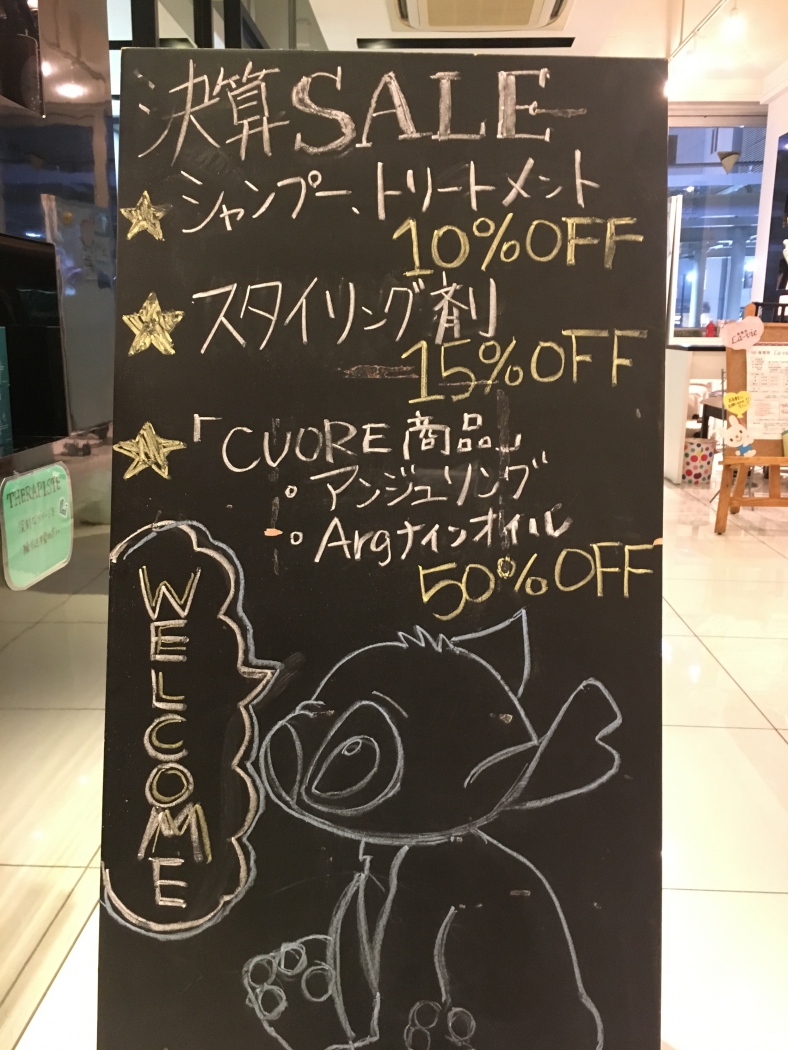 決算SALE
シャンプー、トリートメント
10%OFF
スタイリング剤
15%OFF
「CUORE商品」
。アンジュリング
。Argナインオイル
50%OFF
WELCOME
THERAPISTE
La-vie